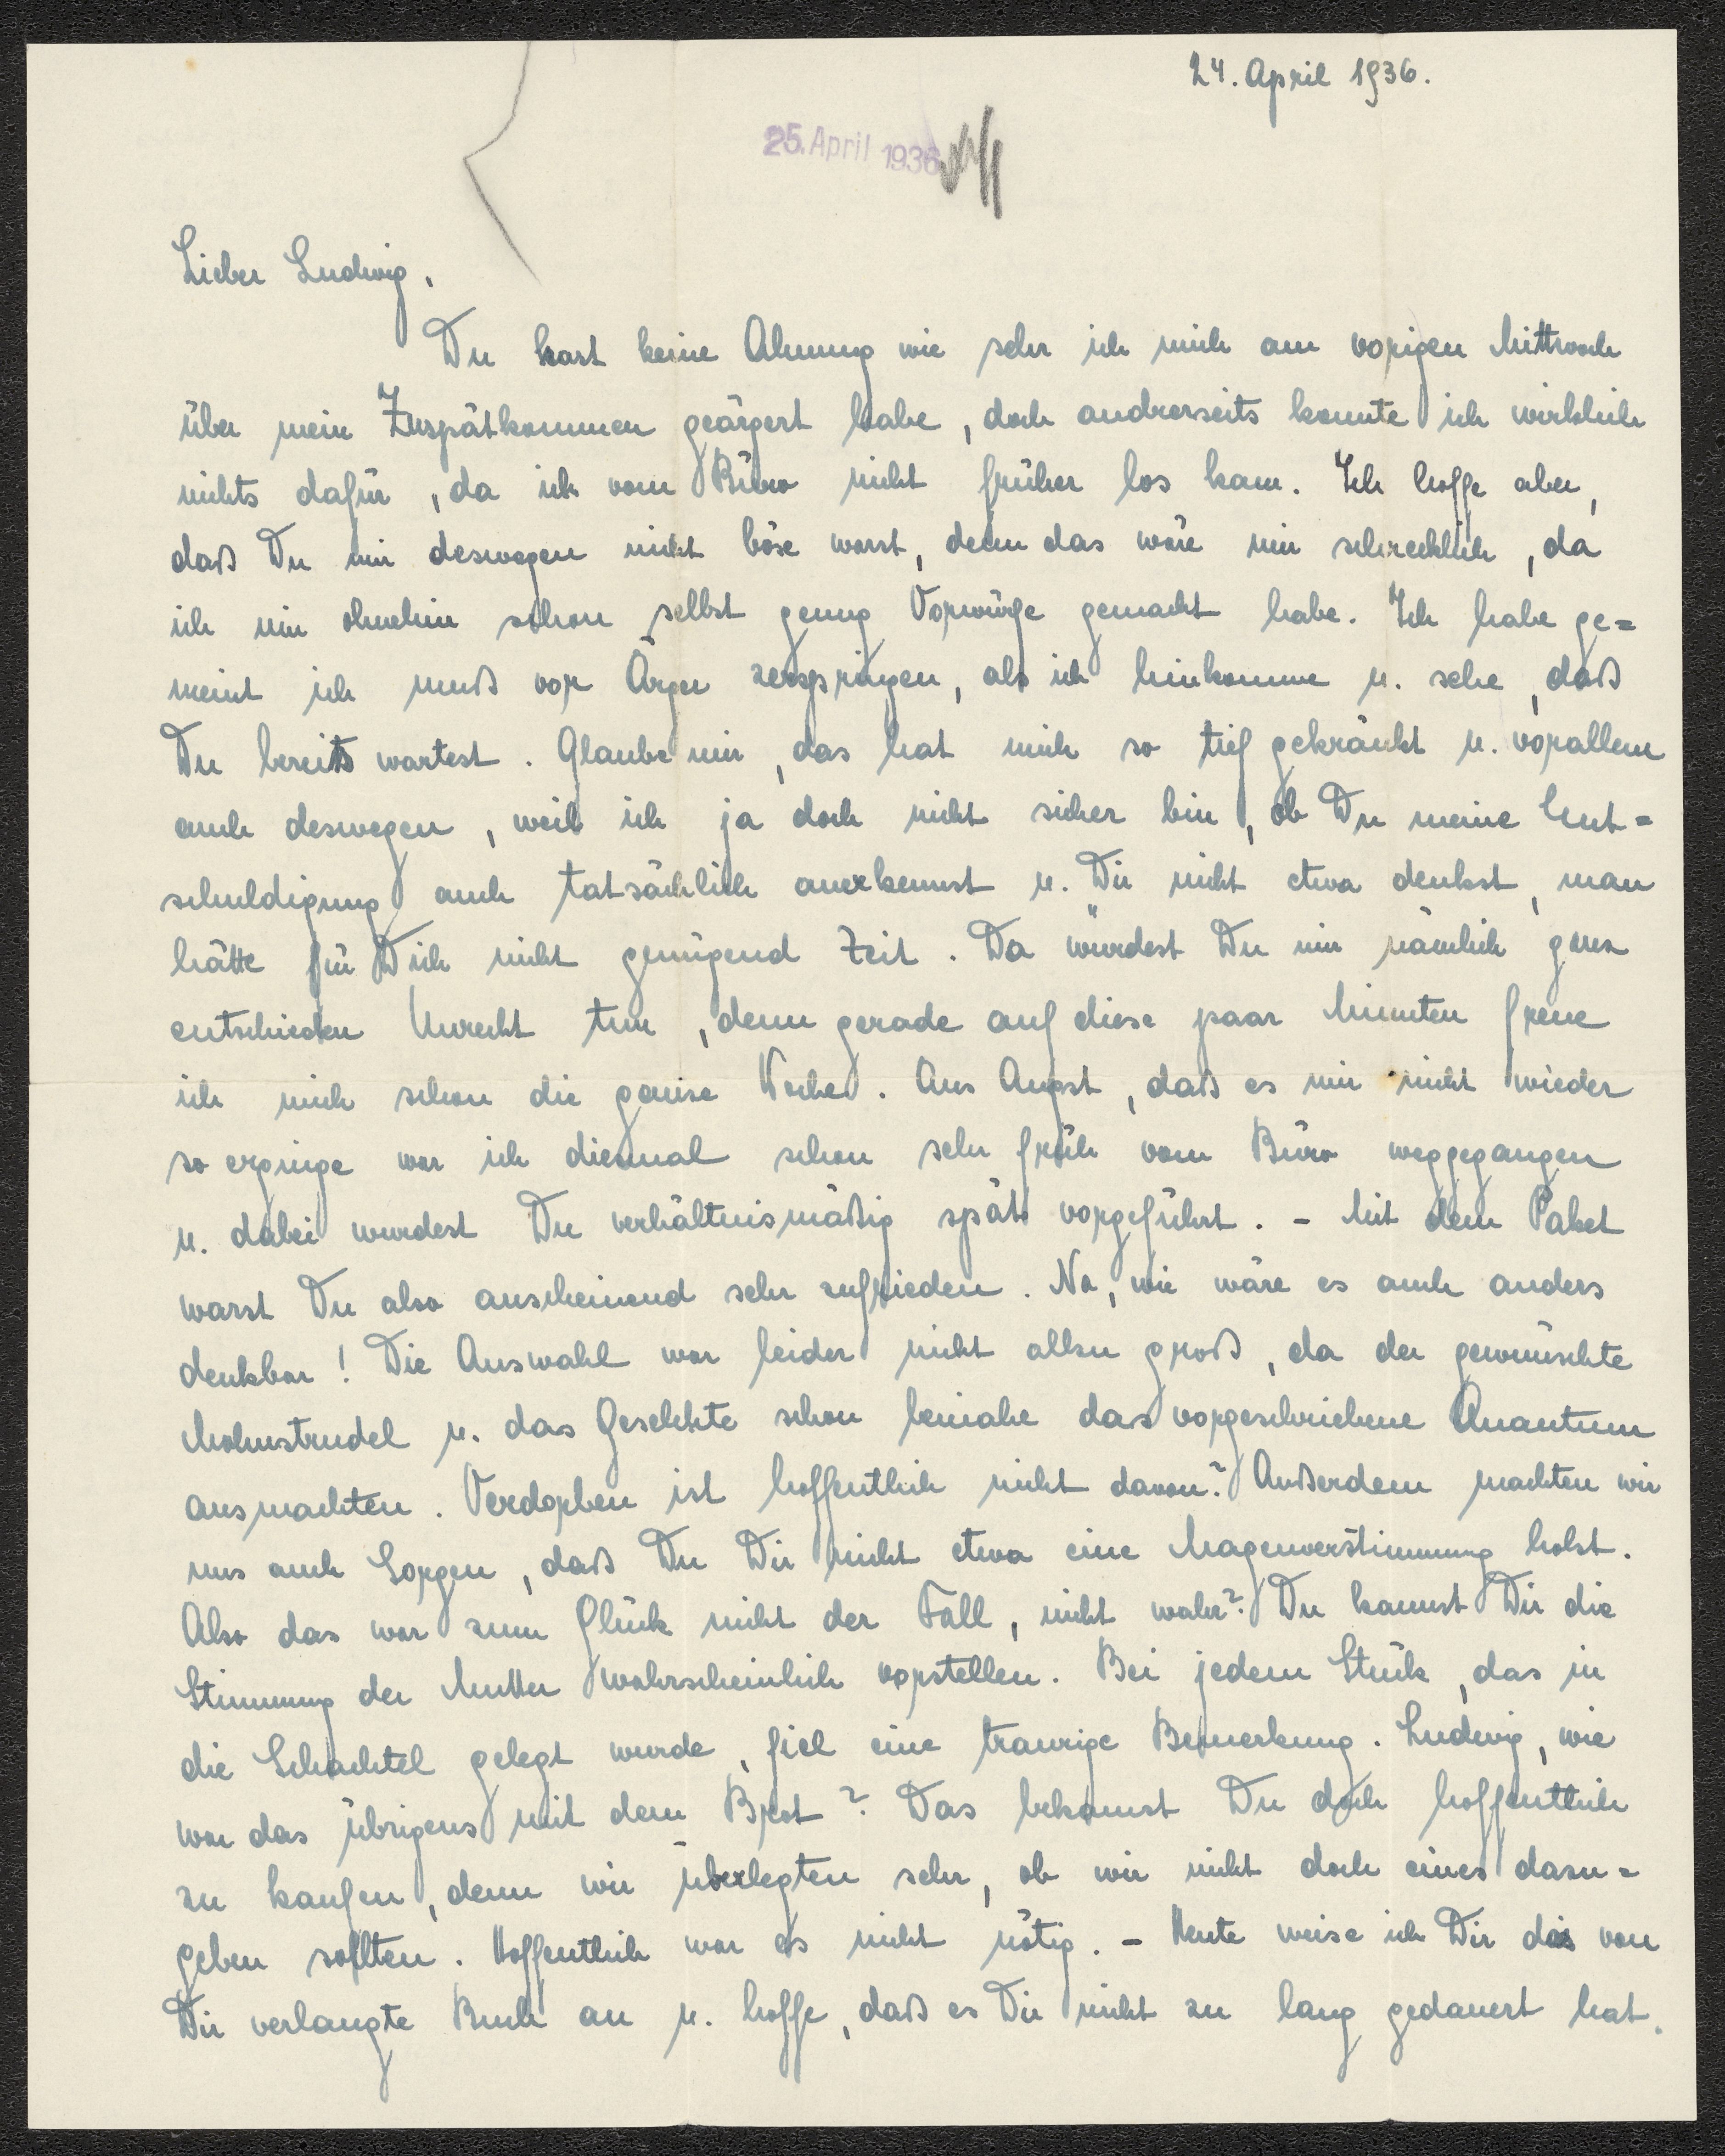 24. April 1936.
25. April 1936
Lieber Ludwig,
Du hast keine Ahnung wie sehr ich mich am vorigen Mittwoch
über mein Zuspätkommen geärgert habe, doch andrerseits konnte ich wirklich
nichts dafür, da ich vom Büro nicht früher los kam. Ich hoffe aber,
daß Du mir deswegen nicht böse warst, denn das wäre mir schrecklich, da
ich mir ohnehin schon selbst genug Vorwürfe gemacht habe. Ich habe ge=
meint ich muß vor Ärger zerspringen, als ich hinkomme u. sehe, daß
Du bereits wartest. Glaube mir, das hat mich so tief gekränkt u. vorallem
auch deswegen, weil ich ja doch nicht sicher bin, ob Du meine Ent=
schuldigung auch tatsächlich anerkennst u. Dir nicht etwa denkst, man
hätte für Dich nicht genügend Zeit. Da würdest Du mir nämlich ganz
entschieden Unrecht tun, denn gerade auf diese paar Minuten freue
ich mich schon die ganze Woche. Aus Angst, daß es mir nicht wieder
so erginge war ich diesmal schon sehr früh vom Büro weggegangen
u. dabei wurdest Du verhältnismäßig spät vorgeführt. - Mit dem Paket
warst Du also anscheinend sehr zufrieden. Na, wie wäre es auch anders
denkbar! Die Auswahl war leider nicht allzu groß, da der gewünschte
Mohnstrudel u. das Geselchte schon beinahe das vorgeschriebene Quantum
ausmachten. Verdorben ist hoffentlich nicht davon? Außerdem machten wir
uns auch Sorgen, daß Du Dir nicht etwa eine Magenverstimmung holst.
Also das war zum Glück nicht der Fall, nicht wahr? Du kannst Dir die
Stimmung der Mutter wahrscheinlich vorstellen. Bei jedem Stück, das in
die Schachtel gelegt wurde, fiel eine traurige Bemerkung. Ludwig, wie
war das übrigens mit dem Brot? Das bekommst Du doch hoffentlich
zu kaufen, denn wir überlegten sehr, ob wir nicht doch eines dazu=
geben sollten. Hoffentlich war es nicht nötig. - Heute weise ich Dir das von
Dir verlangte Buch an u. hoffe, daß es Dir nicht zu lang gedauert hat.